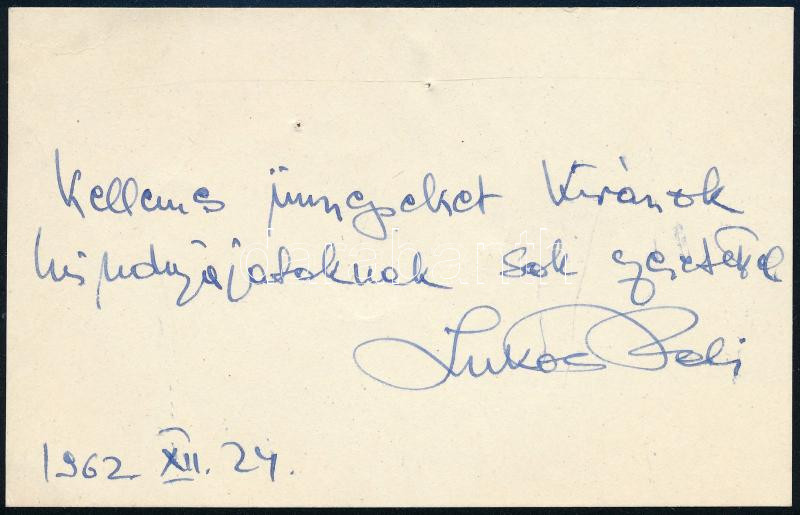 Kellems ünnepeket kívánok
kis pudnyájatoknak sok szeretettel
Lukács Pali
1962 XII. 24.